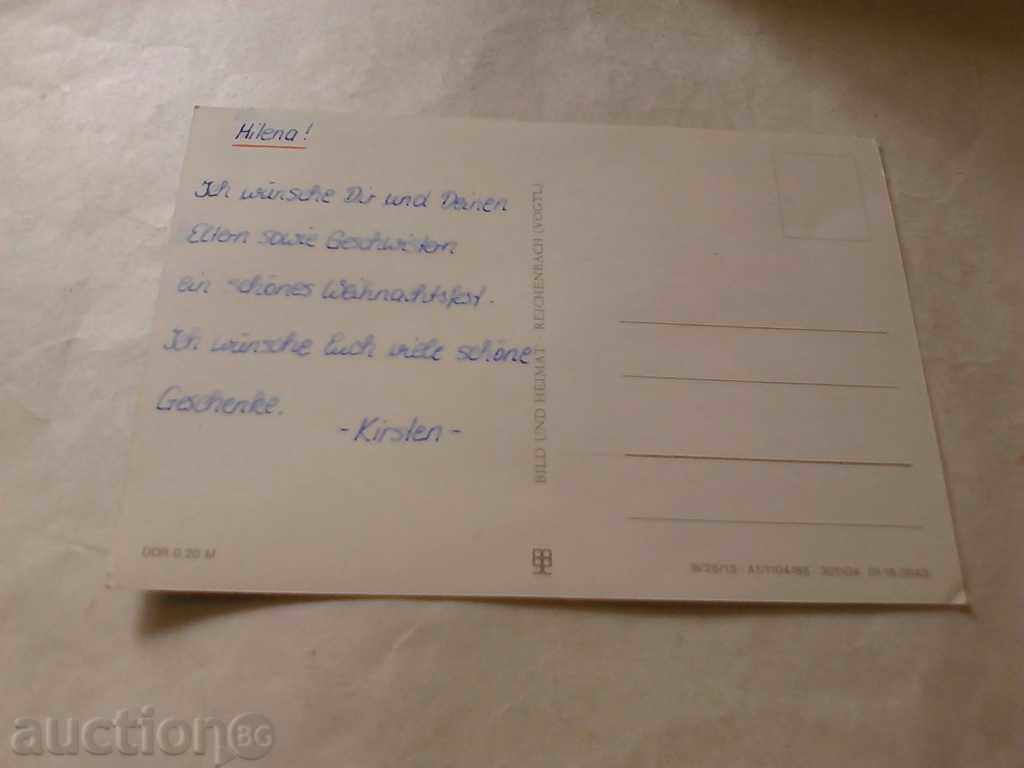 Hilena!
Ich wünsche Dir und Deinen
Eltern sowie Geschwistern
ein schönes Weihnachtsfest.
Ich wünsche Euch viele schöne
Geschenke.
-Kirsten-
BILD UND HEIMAT REICHENBACH (VOGTL)
DDR 0,20 M
auction BG